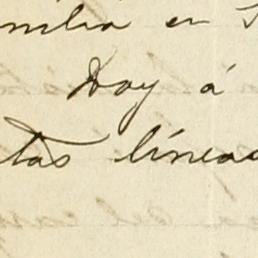 milia en
Doy á
tas líneas